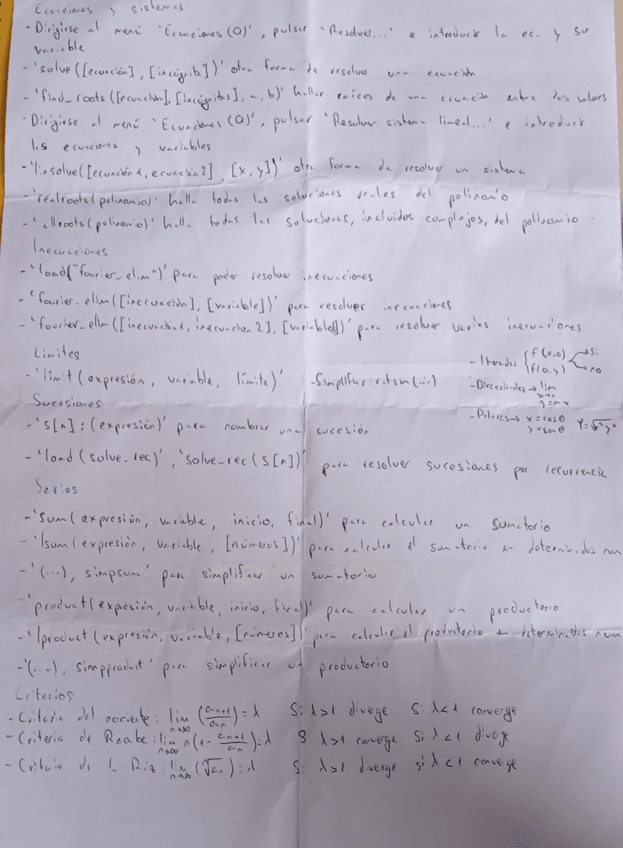 Ecuaciones y sistemas
- Dirigirse al menú 'Ecuaciones (O)', pulsar 'Resolver...' e introducir la ec. y su
variable
- 'solve([ecuación], [incógnita])' otra forma de resolver una ecuación
- 'find_roots([ecuación], [incógnitas], a, b)' hallar raíces de una ecuación entre dos valores
- Dirigirse al menú 'Ecuaciones (O)', pulsar 'Resolver sistema lineal...' e introducir
las ecuaciones y variables
- 'linsolve([ecuación1, ecuación2], [x, y])' otra forma de resolver un sistema
- 'realroots(polinomio)' halla todas las soluciones reales del polinomio
- 'allroots(polinomio)' halla todas las soluciones, incluidos complejos, del polinomio
Inecuaciones
- 'load("fourier_elim")' para poder resolver inecuaciones
- 'fourier_elim([inecuación], [variable])' para resolver inecuaciones
- 'fourier_elim([inecuación1, inecuacion2], [variables])' para resolver varias inecuaciones
Límites
- 'limit(expresión, variable, límite)' - Simplificar: ratsim(...)
- Iterados { f(x,0) f(0,y) → si → no
- Direccionales → lim x→ y=mx
- Polares → x=cosθ y=senθ r=√x²y²
Sucesiones
- 's[n]:(expresión)' para nombrar una sucesión
- 'load(solve_rec)', 'solve_rec(s[n])' para resolver sucesiones por recurrencia
Series
- 'sum(expresión, variable, inicio, final)' para calcular un sumatorio
- 'lsum(expresión, variable, [números])' para calcular el sumatorio en determinados num
- '(...), simpsum' para simplificar un sumatorio
- 'product(expresión, variable, inicio, final)' para calcular un productorio
- 'lproduct(expresión, variable, [números])' para calcular el productorio en determinados num
- '(...), simpproduct' para simplificar un productorio
Criterios
- Criterio del cociente: lim n→∞ (an+1/an)=λ Si λ>1 diverge Si λ<1 converge
- Criterio de Raabe: lim n→∞ n(1-an+1/an)=λ Si λ>1 converge Si λ<1 diverge
- Criterio de la Raíz: lim n→∞ (ⁿ√an)=λ Si λ>1 diverge si λ<1 converge